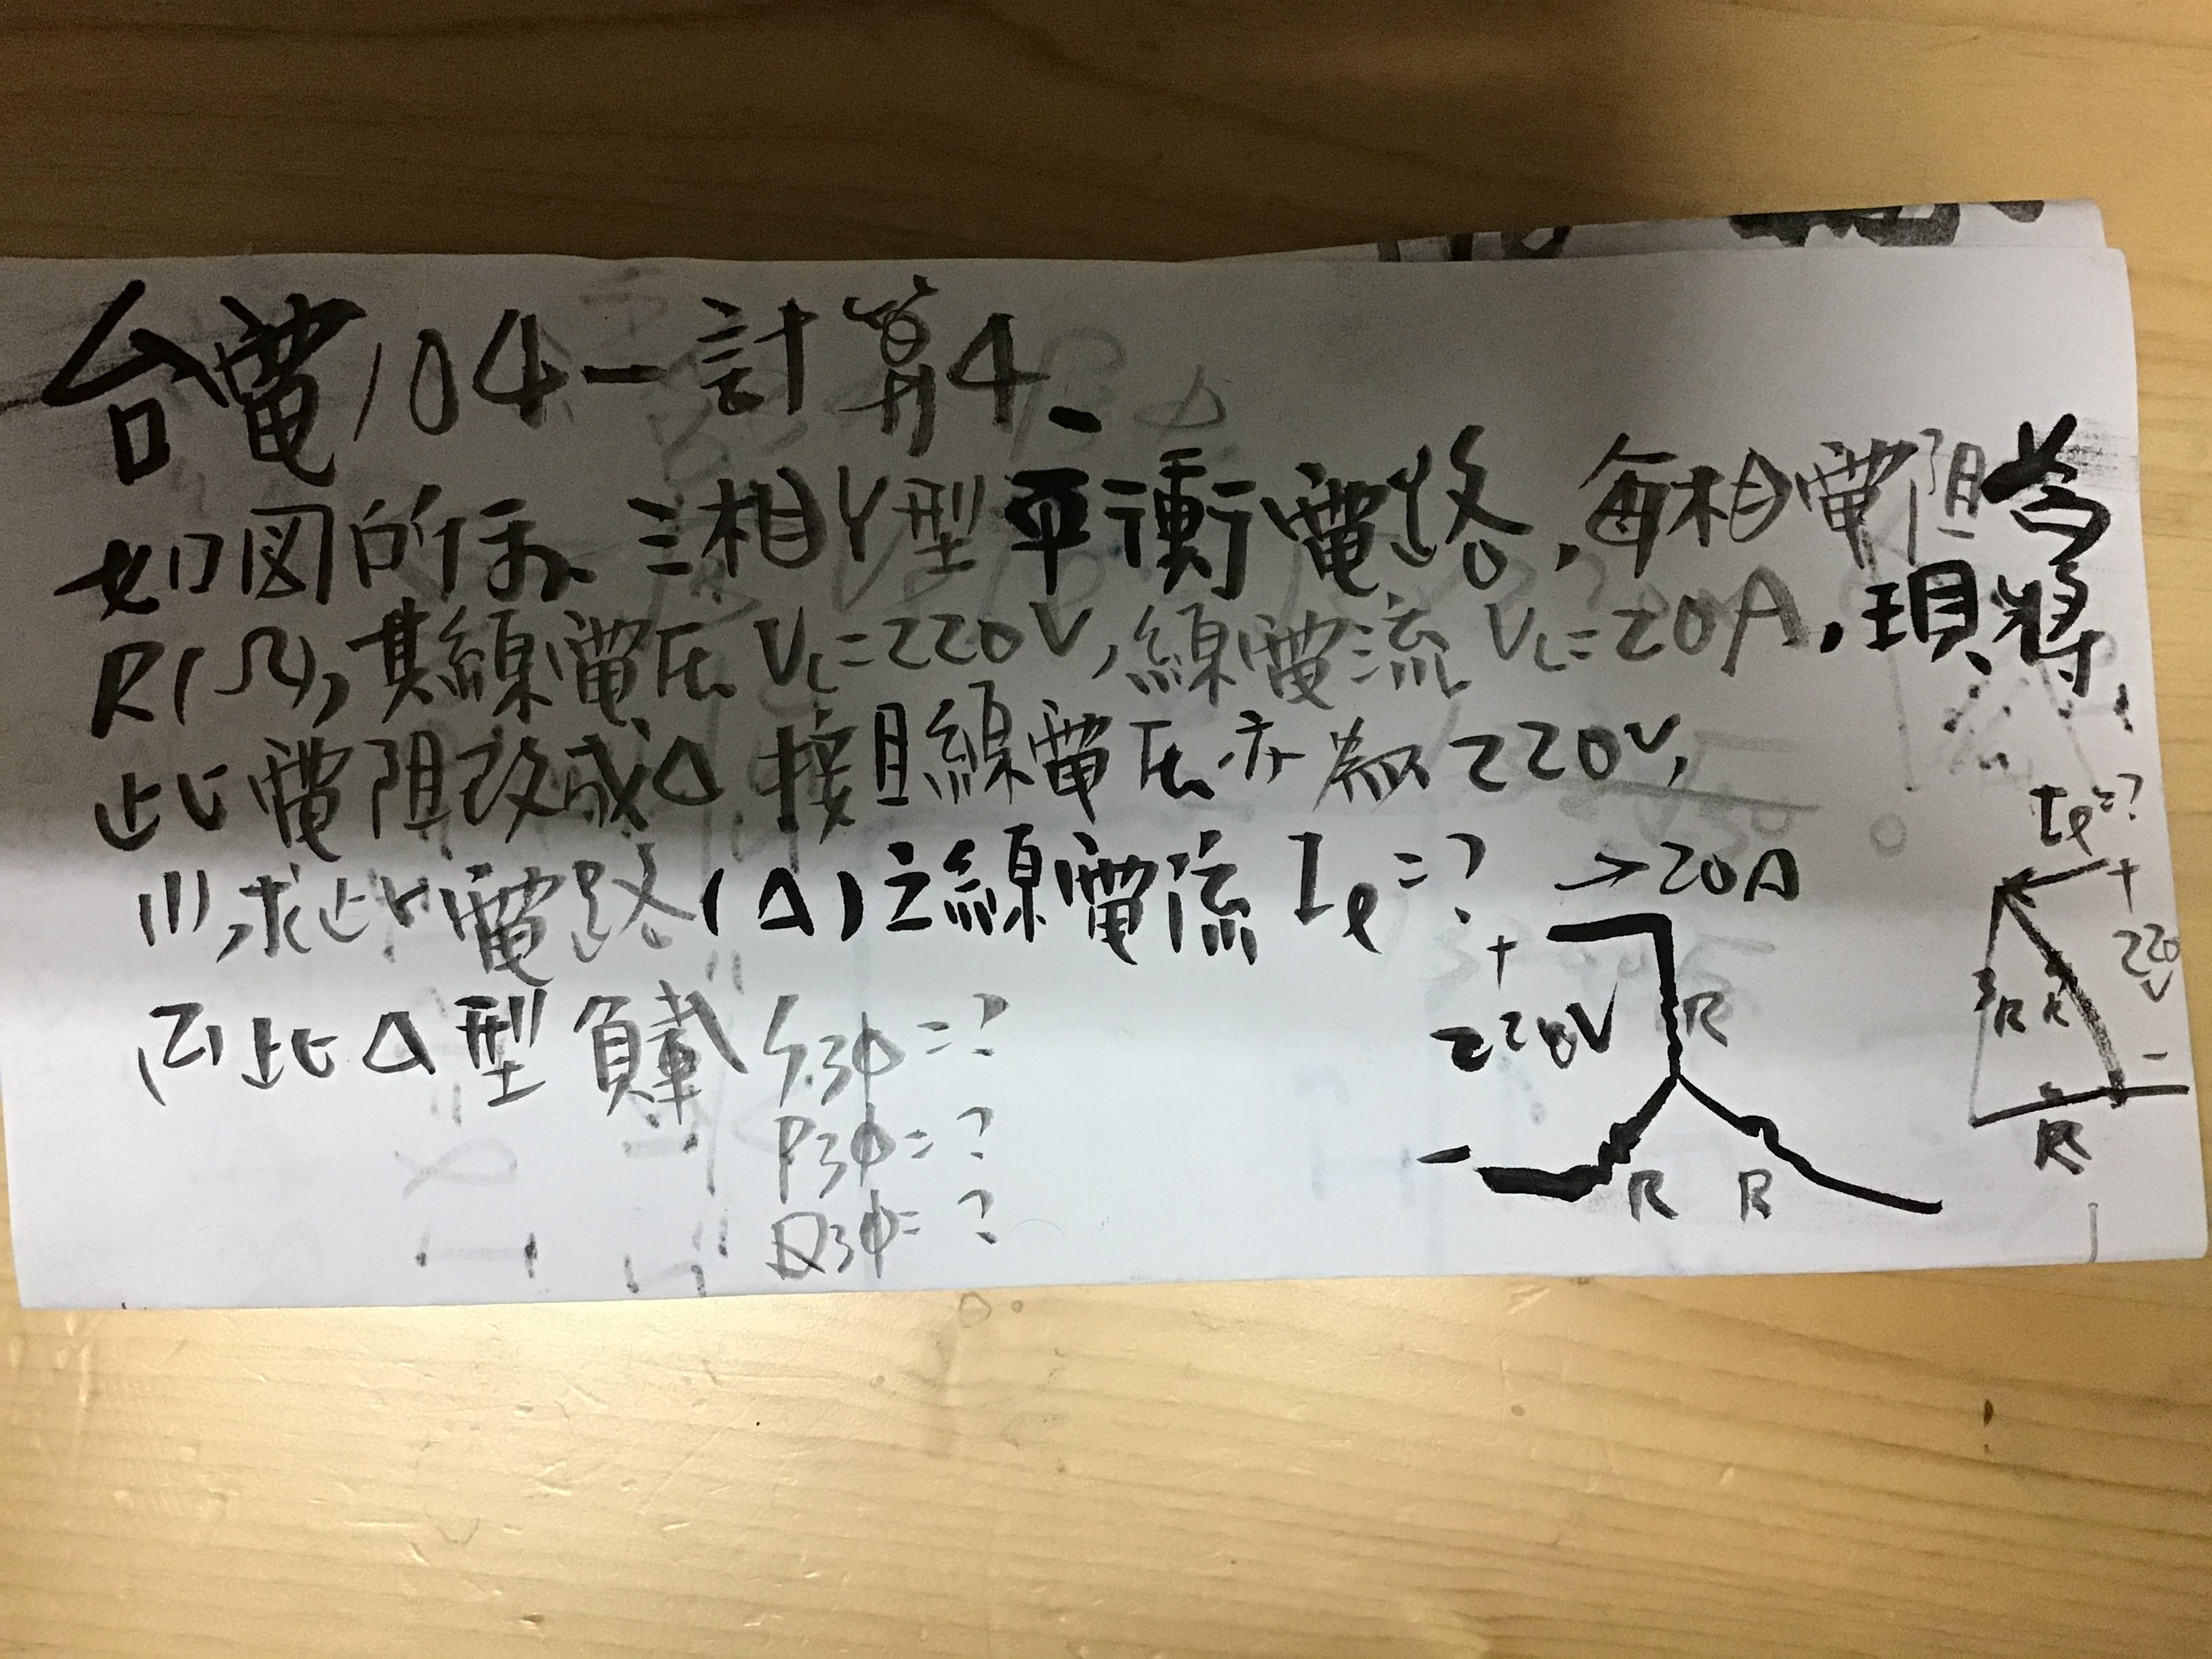 台電104-計算4、
如図所示三相Y型平衝電路,每相電阻為
R(Ω),其線電圧VL=220V,線電流VL=20A,現將
此電阻改成Δ接且線電圧亦為220V,
(1),求此電路(Δ)之線電流Iℓ=?
(2)此Δ型負載S3φ=?
P3φ=?
Q3φ=?
→20A
+
220V
R
-
R R
Iℓ=?
+
220
V
R R
-
R